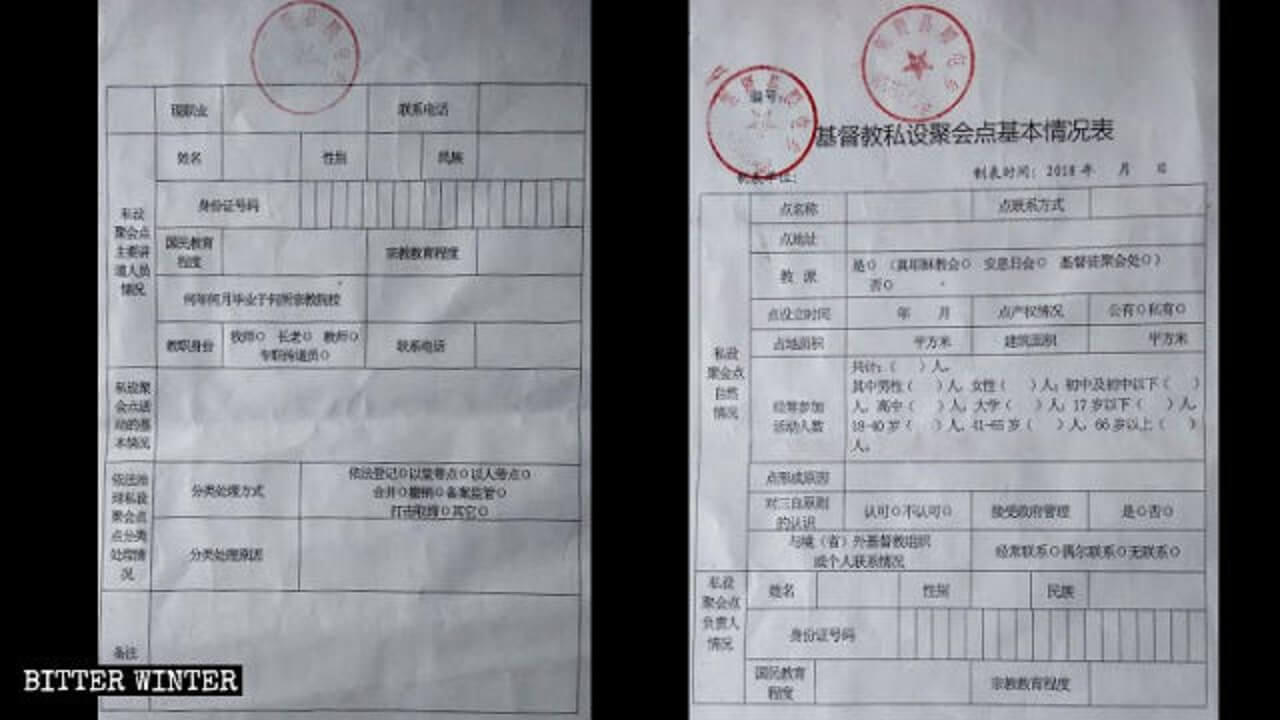 现职业 联系电话
姓名 性别 民族
私设
聚会点
主要讲
道人员
情况
身份证号码
国民教育
程度
宗教教育程度
何年何月毕业于何所宗教院校
教职身份
牧师○ 长老○ 教师○
专职传道员○
联系电话
私设聚
会点活
动的基
本情况
依法治
理私设
聚会点
点分类
处置情
况
分类处理方式
依法登记○以堂带点○以人带点○
合并○撤销○备案监管○
打击取缔○其它○
分类处理原因
备注
BITTER WINTER
编号:
基督教私设聚会点基本情况表
制表单位:
制表时间: 2018 年 月 日
私设
聚会点
自然
情况
点名称 点联系方式
点地址
教 派
是○ (真耶稣教会○ 安息日会○ 基督徒聚会处○)
否○
点设立时间 年 月 点产权情况 公有○私有○
占地面积 平方米 建筑面积 平方米
经常参加
活动人数
共计:( )人。
其中男性( )人,女性( )人;初中及初中以下( )
人,高中( )人,大学( )人;17岁以下( )人,
18-40岁( )人,41-65岁( )人,66岁以上( )
人。
点形成原因
对三自原则
的认识
认可○不认可○ 接受政府管理 是○否○
与境(省)外基督教组织
或个人联系情况
经常联系○偶尔联系○无联系○
私设
聚会点
负责人
情况
姓名 性别 民族
身份证号码
国民教育
程度
宗教教育程度